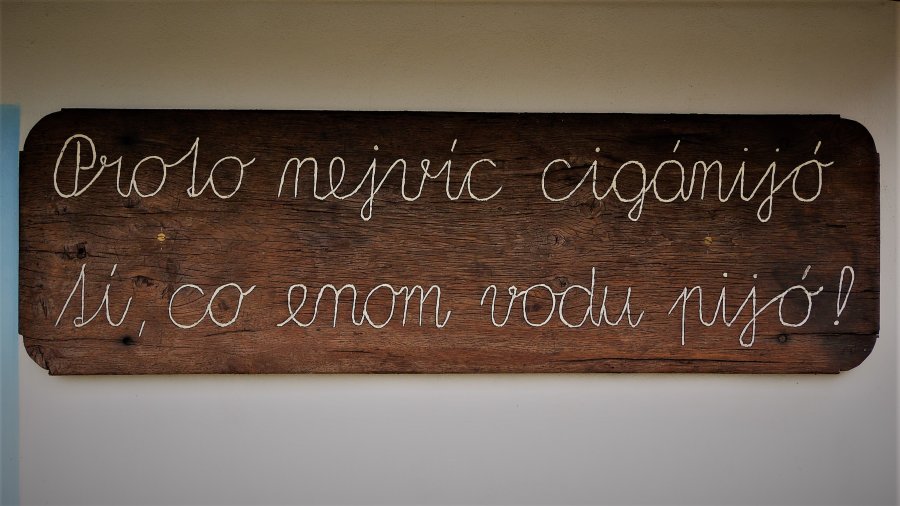 Proto nejvíc cigánijó
tí, co enom vodu pijó!